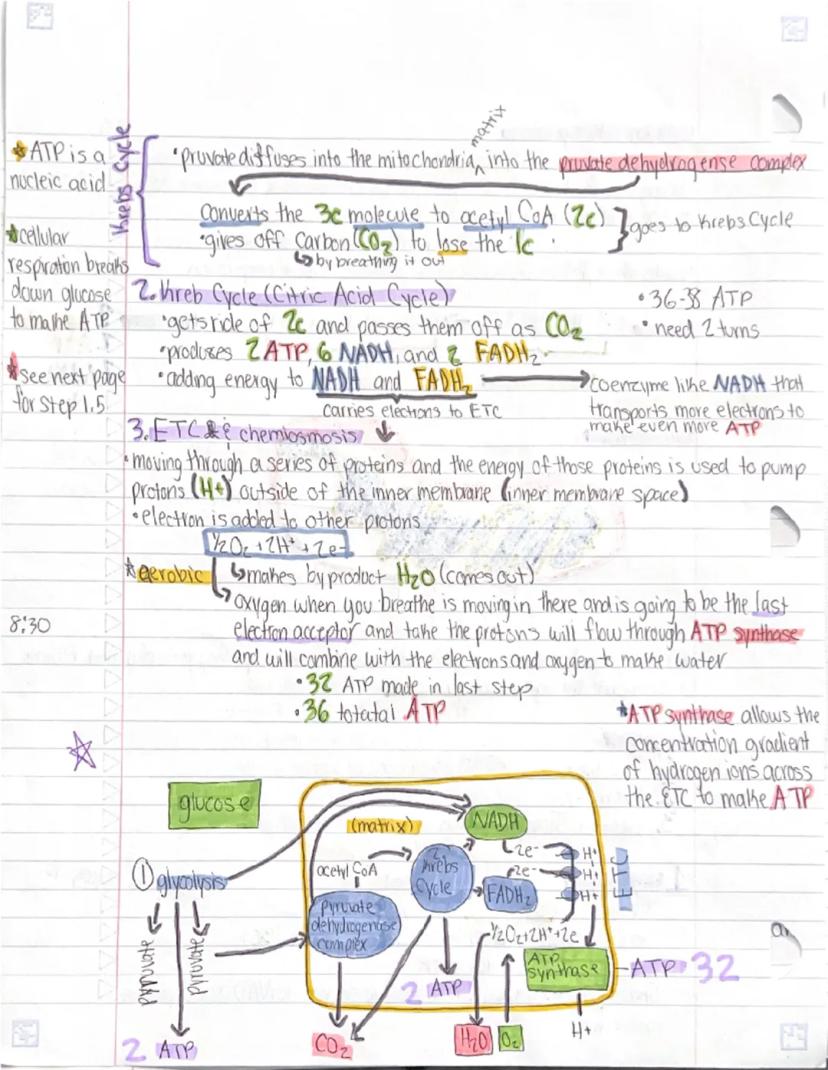 matrix
*ATP is a
nucleic acid
Krebs Cycle
•pruvate diffuses into the mitochondria^ into the pruvate dehydrogense complex
converts the 3c molecule to acetyl CoA (2c)
•gives off Carbon (CO₂) to lose the 1c
} goes to Krebs Cycle
↳ by breathing it out
*cellular
respiration breaks
down glucose
to make ATP
*see next page
for Step 1.5
2. Kreb Cycle (Citric Acid Cycle)
•gets ride of 2c and passes them off as CO₂
•produces 2 ATP, 6 NADH, and 2 FADH₂
•adding energy to NADH and FADH₂
carries elections to ETC
•36-38 ATP
•need 2 turns
coenzyme like NADH that
transports more electrons to
make even more ATP
3. ETC & chemiosmosis
•moving through a series of proteins and the energy of those proteins is used to pump
protons (H+) outside of the inner membrane (inner membrane space)
•electron is added to other protons
½O₂ + 2H⁺ + 2e-
*aerobic
↳makes byproduct H₂O (comes out)
↳ oxygen when you breathe is moving in there and is going to be the last
electron acceptor and take the protons will flow through ATP synthase
and will combine with the electrons and oxygen to make water
8:30
•32 ATP made in last step
•36 totatal ATP
*ATP synthase allows the
concentration gradient
of hydrogen ions across
the ETC to make ATP
glucose
(matrix)
NADH
① glycolysis
acetyl CoA
2
Krebs
Cycle
FADH₂
2e-
2e-
H+
H+
H+
ETC
pyruvate
dehydrogenase
complex
pyruvate
pyruvate
½O₂+2H⁺+2e
ATP
synthase
ATP 32
2 ATP
2 ATP
CO₂
H₂O
O₂
H+